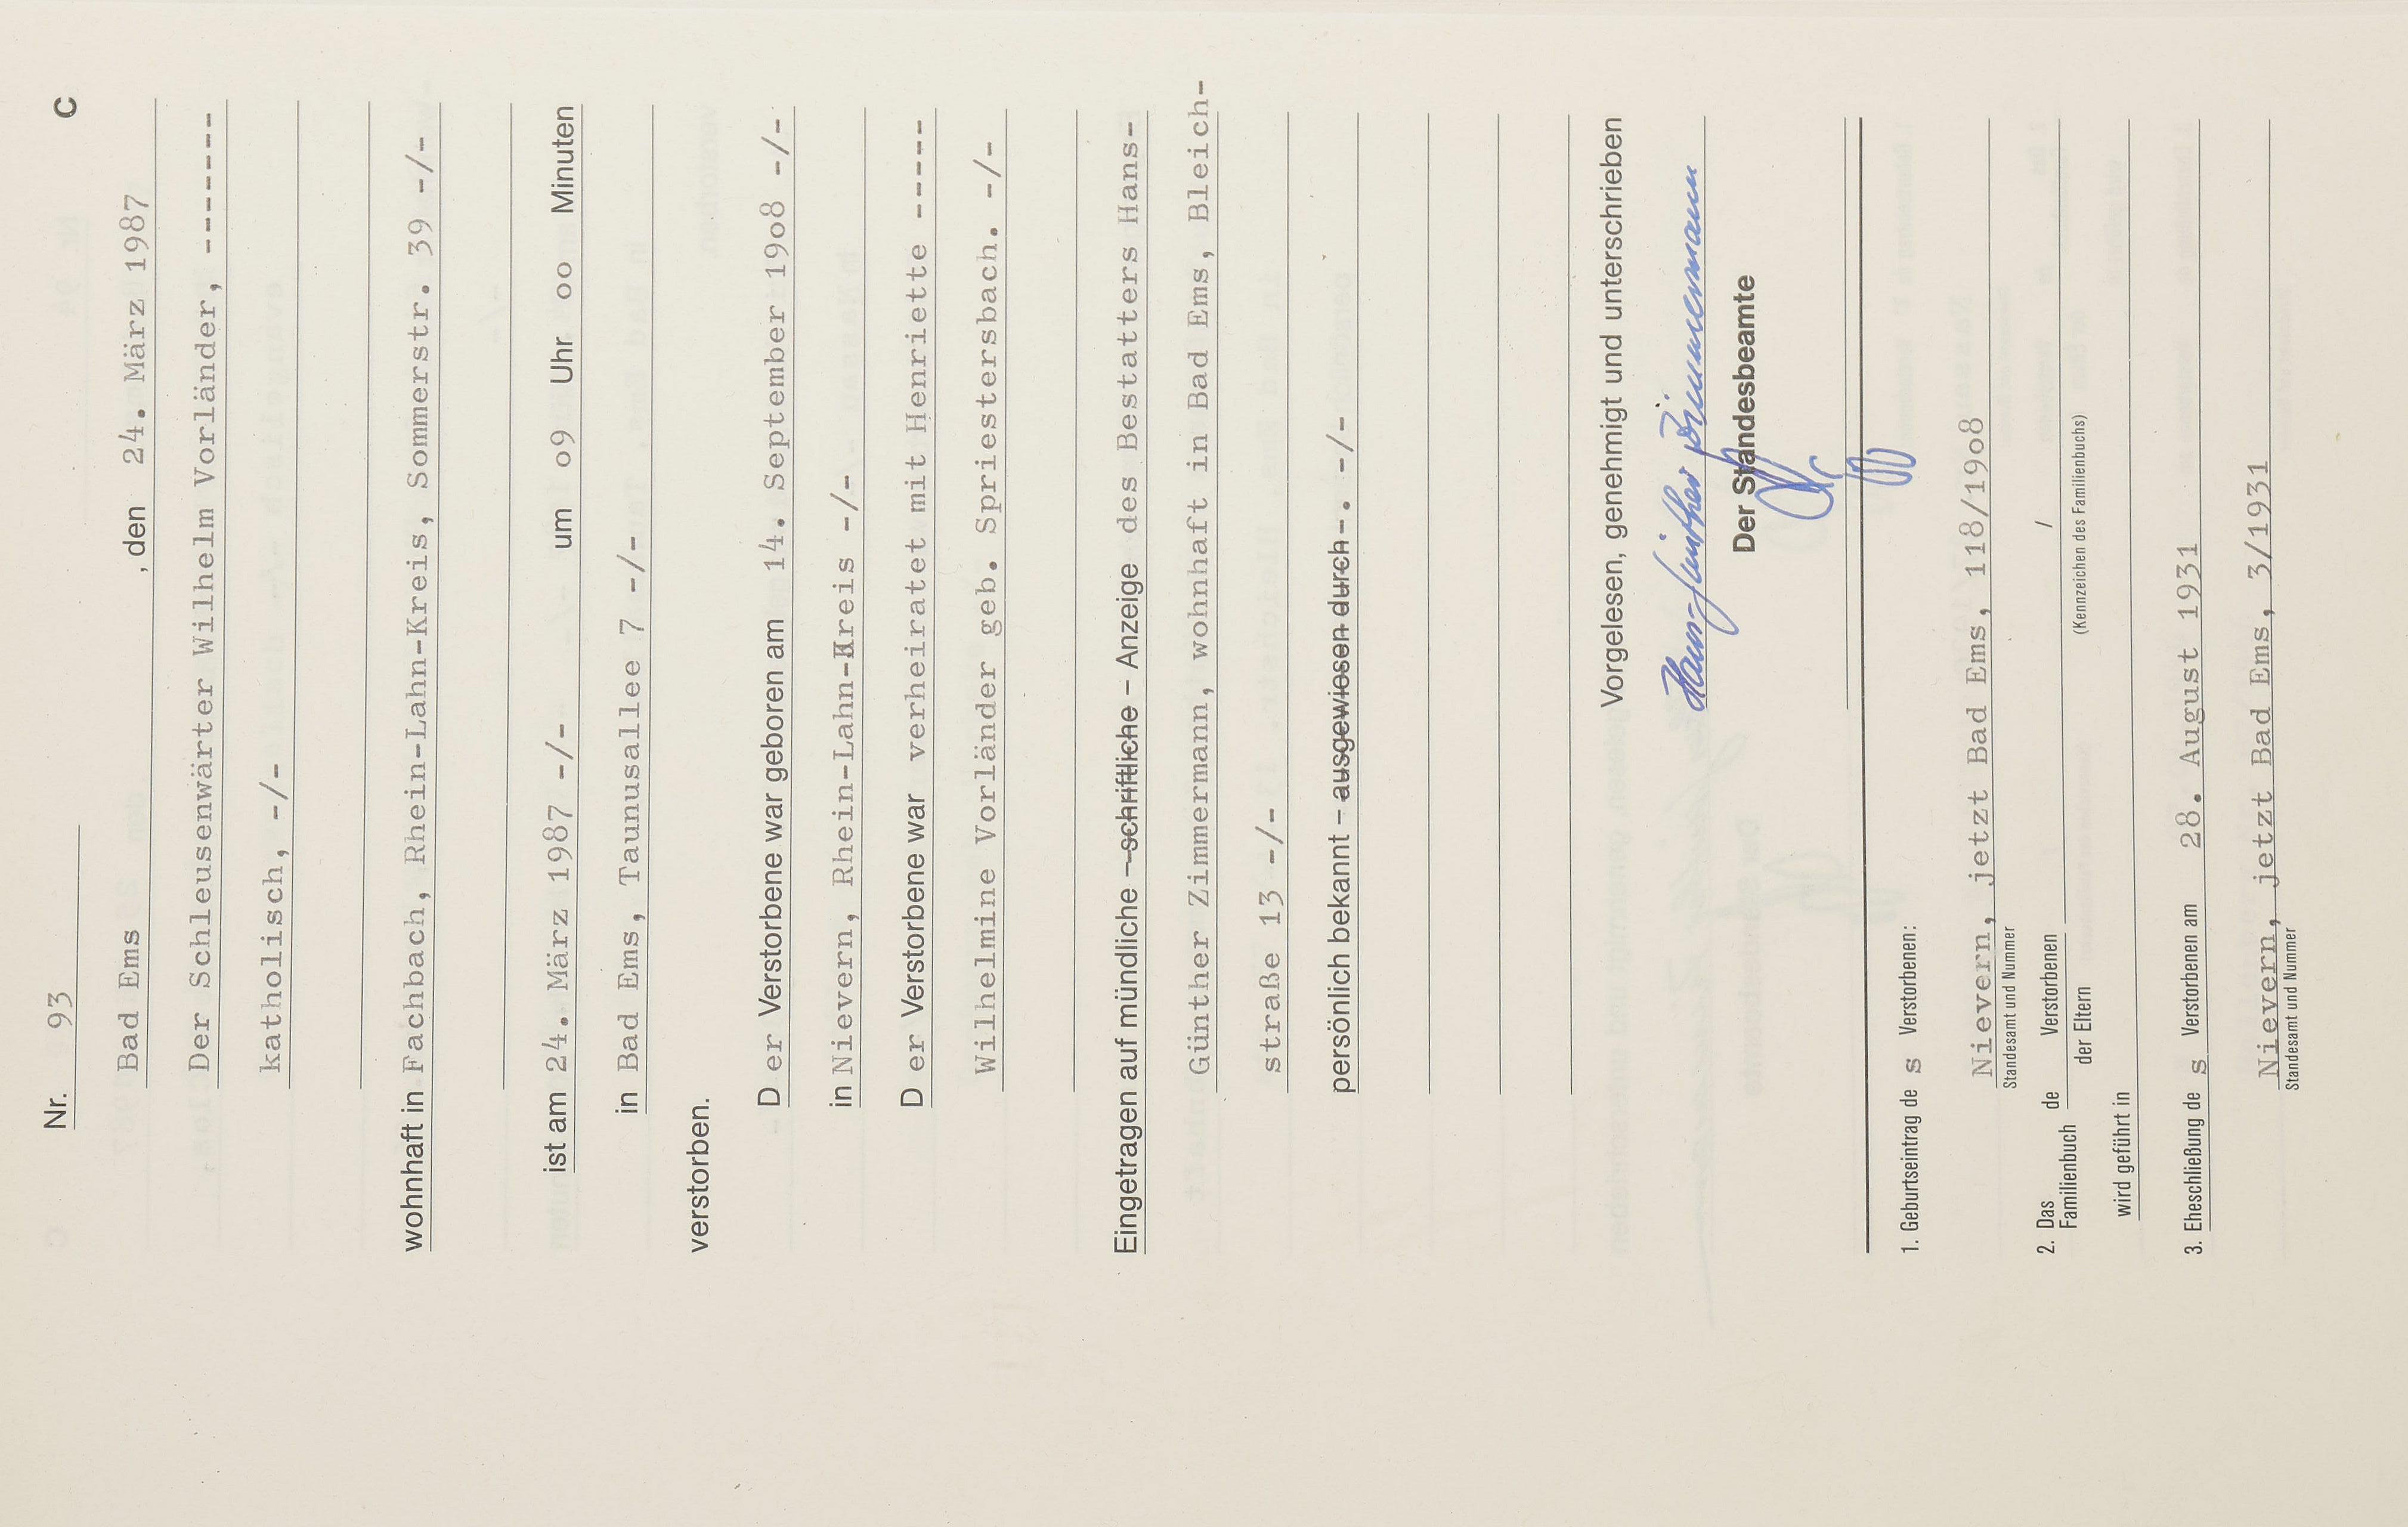 Nr. 93 C
Bad Ems , den 24. März 1987
Der Schleusenwärter Wilhelm Vorländer, -------
katholisch, -/-
wohnhaft in Fachbach, Rhein-Lahn-Kreis, Sommerstr. 39 -/-
ist am 24. März 1987 -/- um o9 Uhr oo Minuten
in Bad Ems, Taunusallee 7 -/-
verstorben.
D er Verstorbene war geboren am 14. September 19o8 -/-
in Nievern, Rhein-Lahn-Kreis -/-
D er Verstorbene war verheiratet mit Henriette ------
Wilhelmine Vorländer geb. Spriestersbach. -/-
Eingetragen auf mündliche – schriftliche – Anzeige des Bestatters Hans-
Günther Zimmermann, wohnhaft in Bad Ems, Bleich-
straße 13 -/-
persönlich bekannt – ausgewiesen durch -. -/-
Vorgelesen, genehmigt und unterschrieben
Hans-Günther Zimmermann
Der Standesbeamte
1. Geburtseintrag de s Verstorbenen:
Nievern, jetzt Bad Ems, 118/19o8
Standesamt und Nummer
2. Das Familienbuch de Verstorbenen /
der Eltern (Kennzeichen des Familienbuchs)
wird geführt in
3. Eheschließung de s Verstorbenen am 28. August 1931
Nievern, jetzt Bad Ems, 3/1931
Standesamt und Nummer